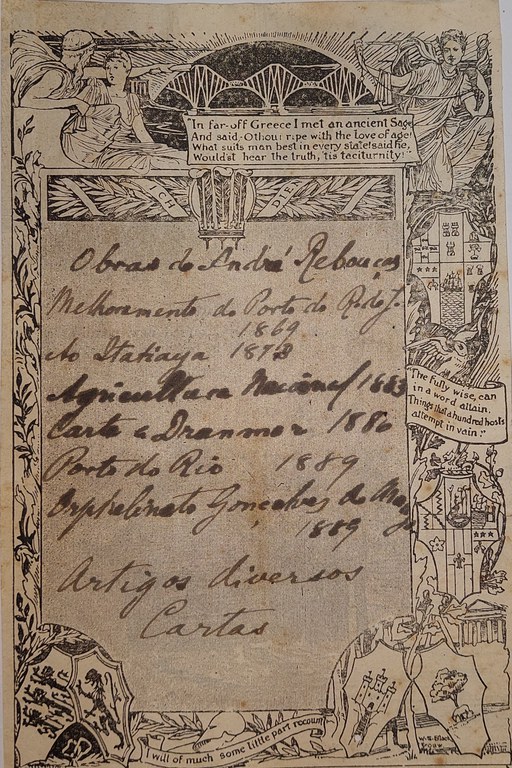 "In far-off Greece I met an ancient Sage
And said-O thou! ripe with the love of age!
What suits man best in every state? said he,
Would'st hear the truth, 'tis taciturnity!"
ICH DIEN
Obras de André Rebouças
Melhoramento do Porto do Rio de J.
1869
Ao Itatiaya 1878
Agricultura Nacional 1883
Carta a Dranmor 1886
Porto do Rio 1889
Orphelinato Gonçalves de
1889
Artigos diversos
Cartas
"The fully wise, can
in a word attain,
Things that a hundred hosts
attempt in vain:"
I will of much some little part recount